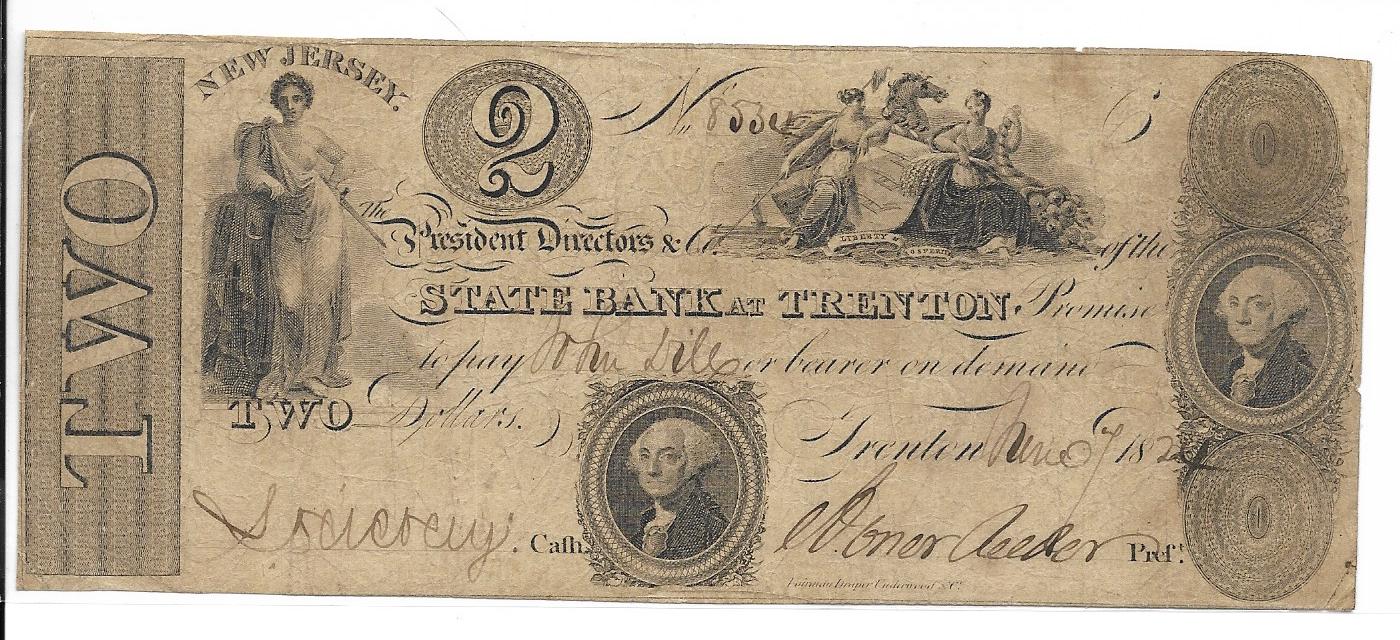 NEW JERSEY.
TWO
2
No 8534 C
The President Directors & Co. of the
LIBERTY &
STATE BANK AT TRENTON Promise
to pay John Dill or bearer on demand
TWO Dollars.
Trenton June 7 182
Cash.
Pres.t
Fairman Draper Underwood & Co.